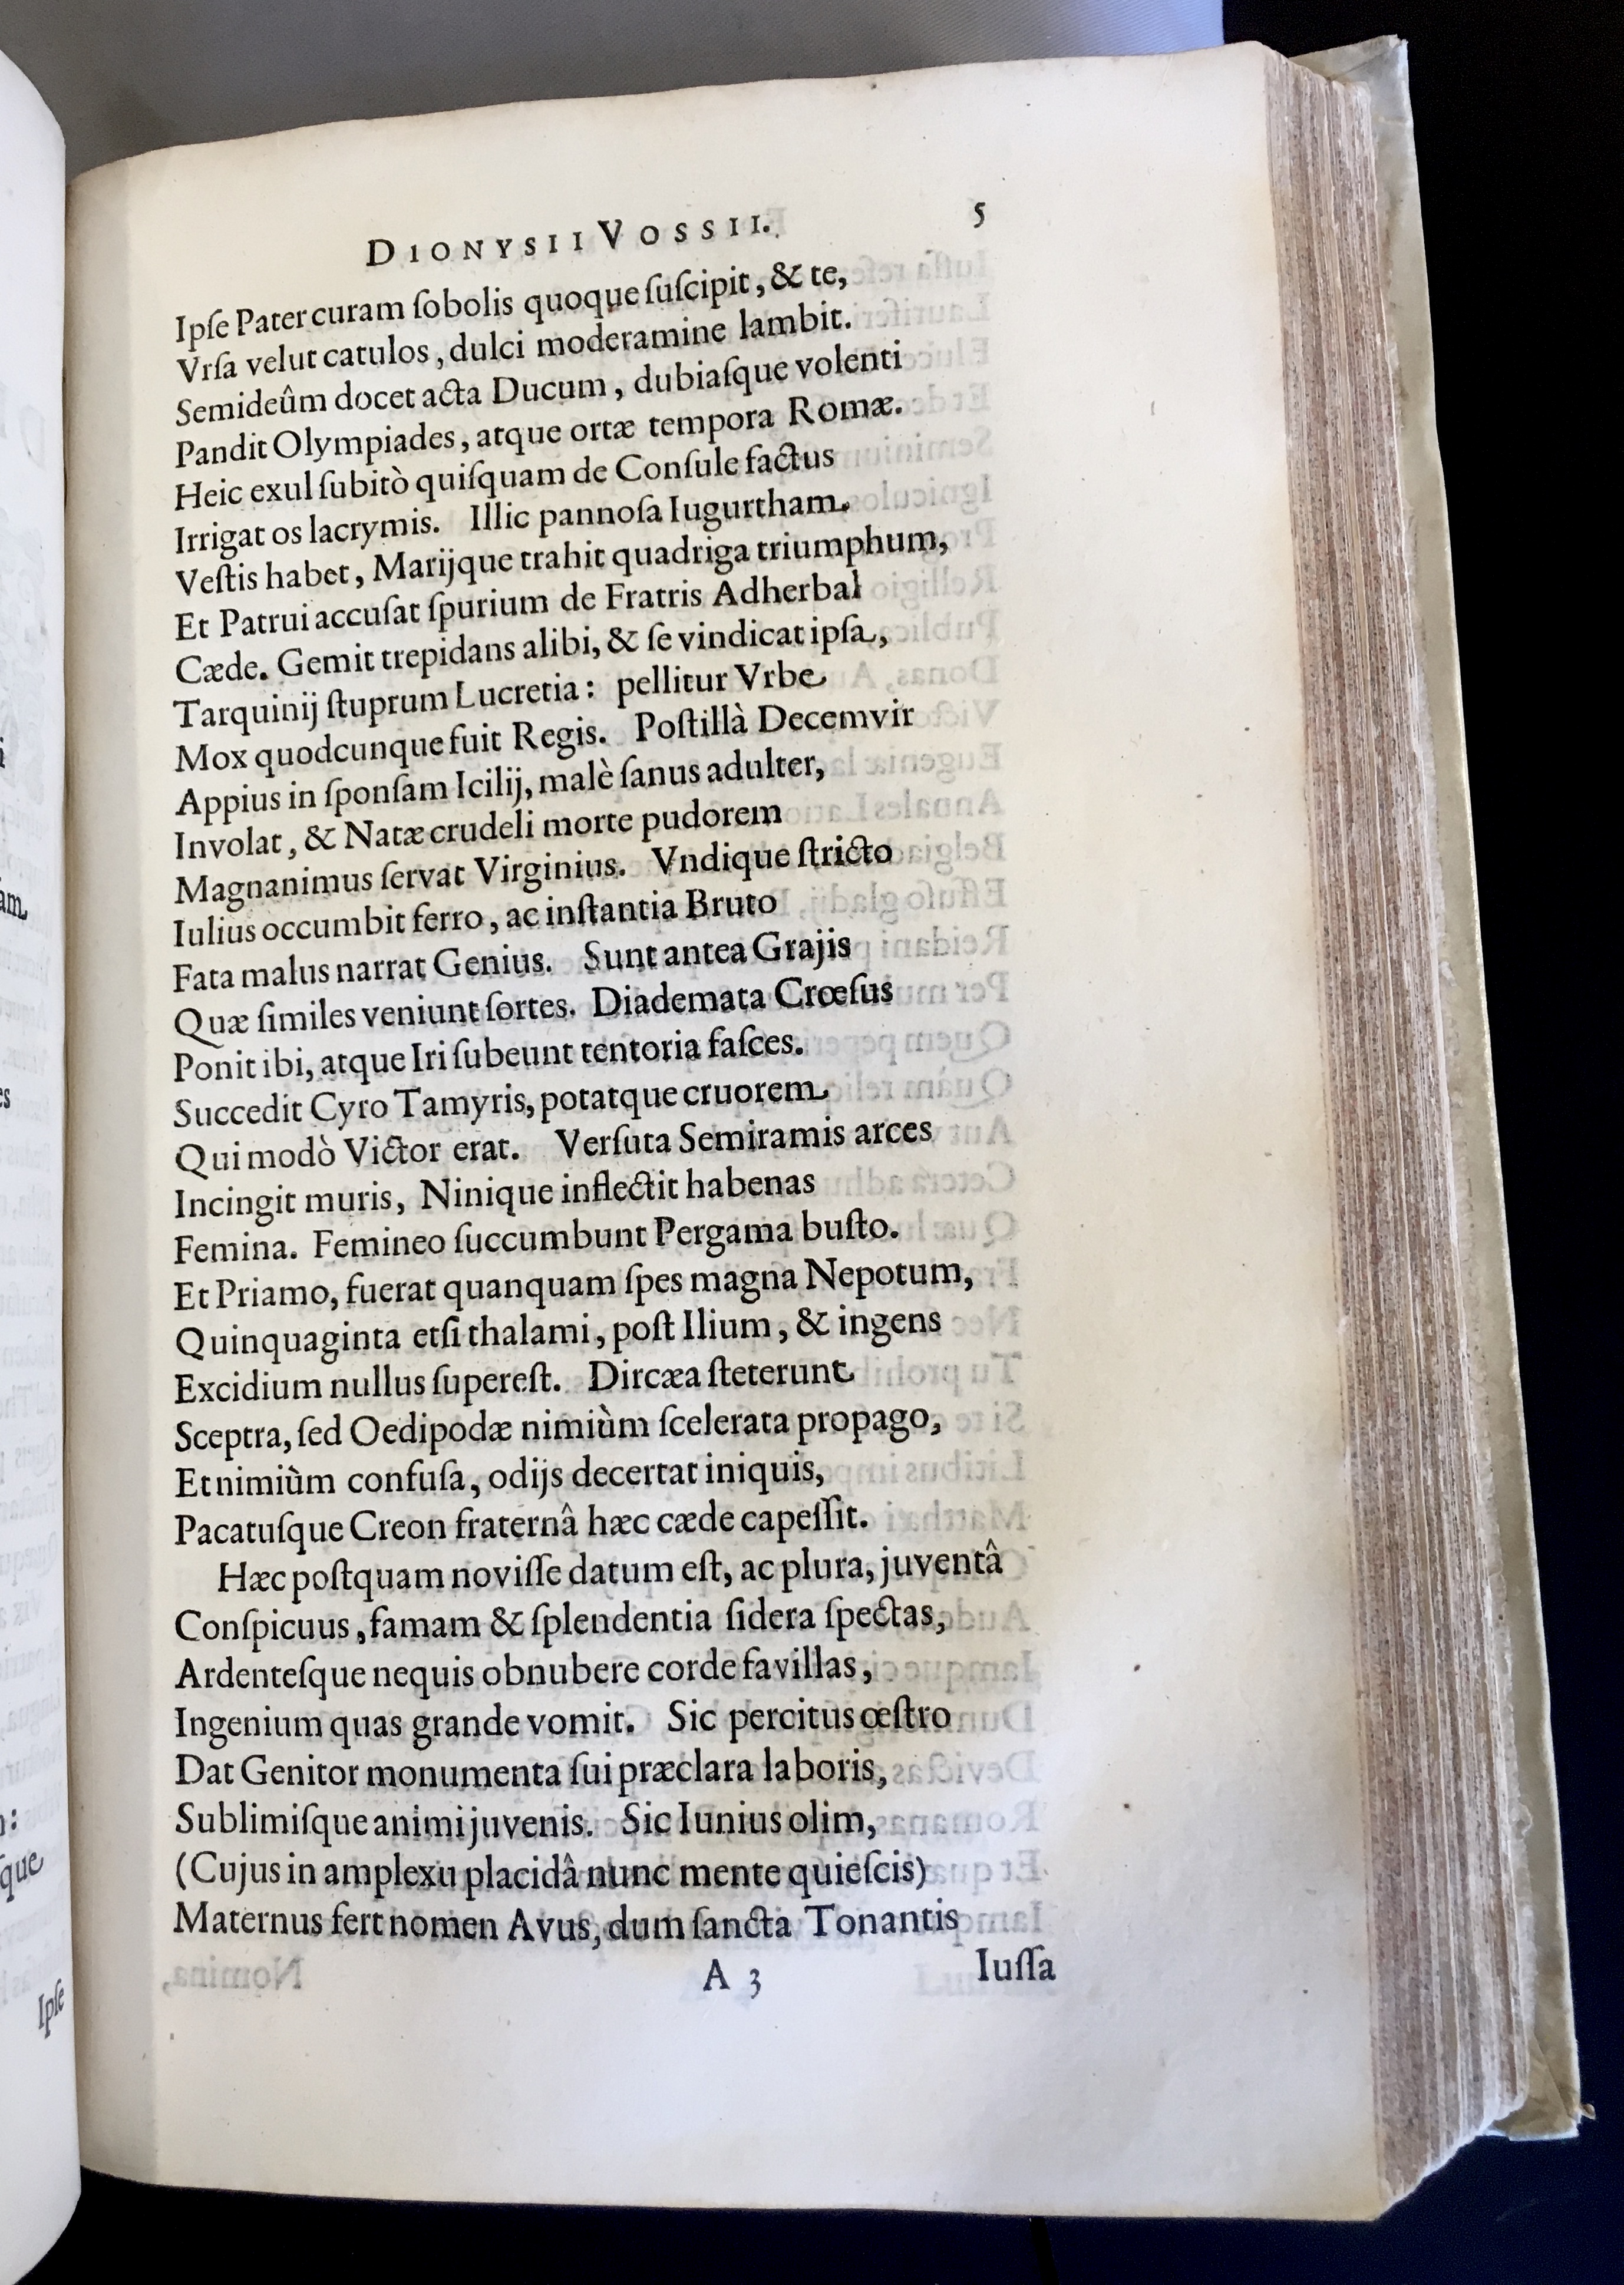 DIONYSII VOSSII. 5
Ipſe Pater curam ſobolis quoque ſuſcipit, & te,
Vrſa velut catulos, dulci moderamine lambit.
Semideûm docet acta Ducum, dubiaſque volenti
Pandit Olympiades, atque ortæ tempora Romæ.
Heic exul ſubitò quiſquam de Conſule factus
Irrigat os lacrymis. Illic pannoſa Iugurtham
Veſtis habet, Marijque trahit quadriga triumphum,
Et Patrui accuſat ſpurium de Fratris Adherbal
Cæde. Gemit trepidans alibi, & ſe vindicat ipſa,
Tarquinij ſtuprum Lucretia: pellitur Vrbe
Mox quodcunque fuit Regis. Poſtillà Decemvir
Appius in ſponſam Icilij, malè ſanus adulter,
Involat, & Natæ crudeli morte pudorem
Magnanimus ſervat Virginius. Vndique ſtricto
Iulius occumbit ferro, ac inſtantia Bruto
Fata malus narrat Genius. Sunt antea Grajis
Quæ ſimiles veniunt ſortes. Diademata Crœſus
Ponit ibi, atque Iri ſubeunt tentoria faſces.
Succedit Cyro Tamyris, potatque cruorem
Qui modò Victor erat. Verſuta Semiramis arces
Incingit muris, Ninique inflectit habenas
Femina. Femineo ſuccumbunt Pergama buſto.
Et Priamo, fuerat quanquam ſpes magna Nepotum,
Quinquaginta etſi thalami, poſt Ilium, & ingens
Excidium nullus ſupereſt. Dircæa ſteterunt
Sceptra, ſed Oedipodæ nimiùm ſcelerata propago,
Et nimiùm confuſa, odijs decertat iniquis,
Pacatuſque Creon fraternâ hæc cæde capeſſit.
Hæc poſtquam noviſſe datum eſt, ac plura, juventâ
Conſpicuus, famam & ſplendentia ſidera ſpectas,
Ardenteſque nequis obnubere corde favillas,
Ingenium quas grande vomit. Sic percitus œſtro
Dat Genitor monumenta ſui præclara laboris,
Sublimiſque animi juvenis. Sic Iunius olim,
(Cujus in amplexu placidâ nunc mente quieſcis)
Maternus fert nomen Avus, dum ſancta Tonantis
A 3 Iuſſa
am
es
:
ſque
Ipſe